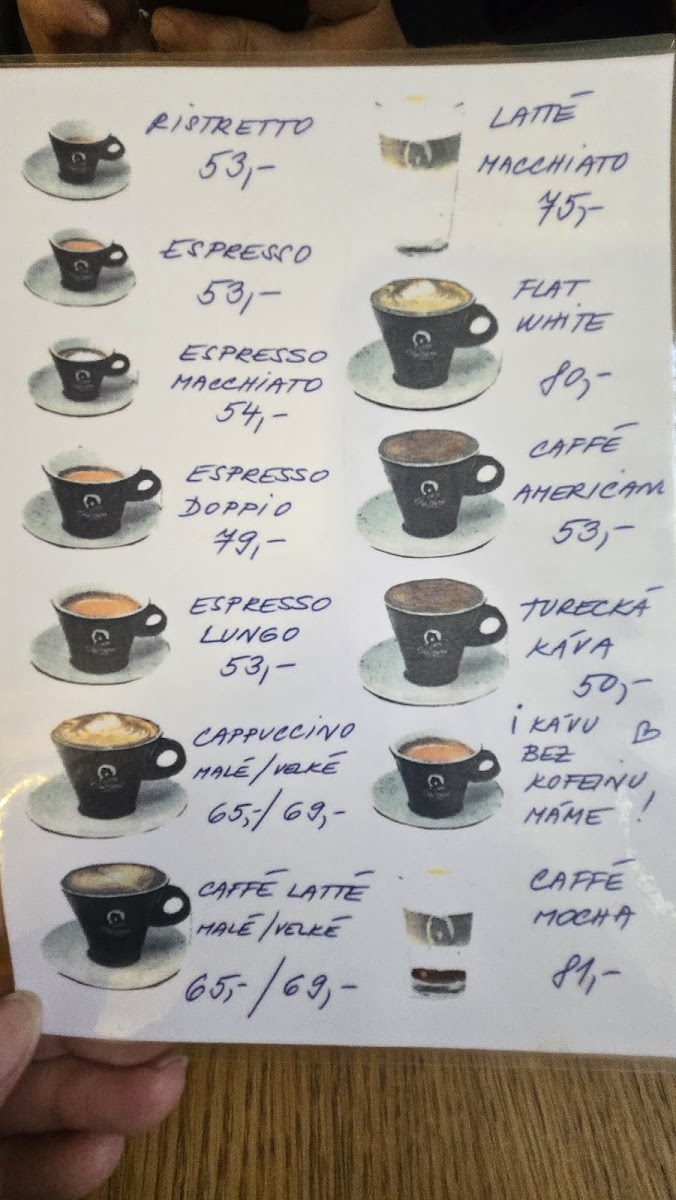 RISTRETTO
53,-
ESPRESSO
53,-
ESPRESSO
MACCHIATO
54,-
ESPRESSO
DOPPIO
79,-
ESPRESSO
LUNGO
53,-
CAPPUCCINO
MALÉ/VELKÉ
65,-/69,-
CAFFÉ LATTÉ
MALÉ/VELKÉ
65,-/69,-
LATTÉ
MACCHIATO
75,-
FLAT
WHITE
80,-
CAFFÉ
AMERICANO
53,-
TURECKÁ
KÁVA
50,-
I KÁVU
BEZ
KOFEINU
MÁME!
CAFFÉ
MOCHA
81,-